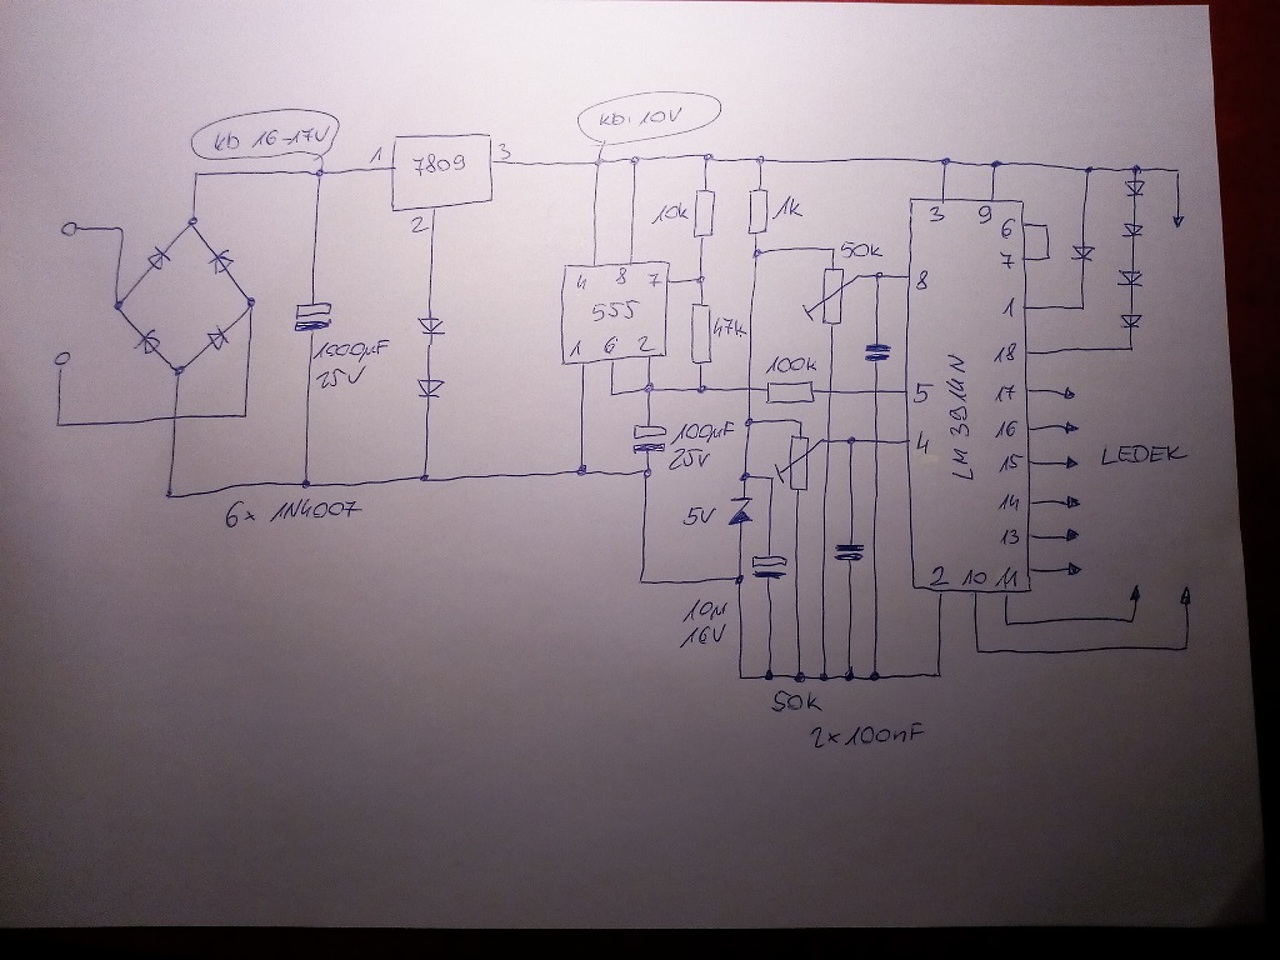 kb 16-17V
kb. 10V
1
7809
3
2
1000µF
25V
6x 1N4007
10k
1k
50k
4 8 7
555
1 6 2
47k
100k
100µF
25V
5V
10µ
16V
50k
2x100nF
3 9
6
7
8
1
18
5
17
4
16
15
14
13
LM 3914N
2 10 11
LEDEK